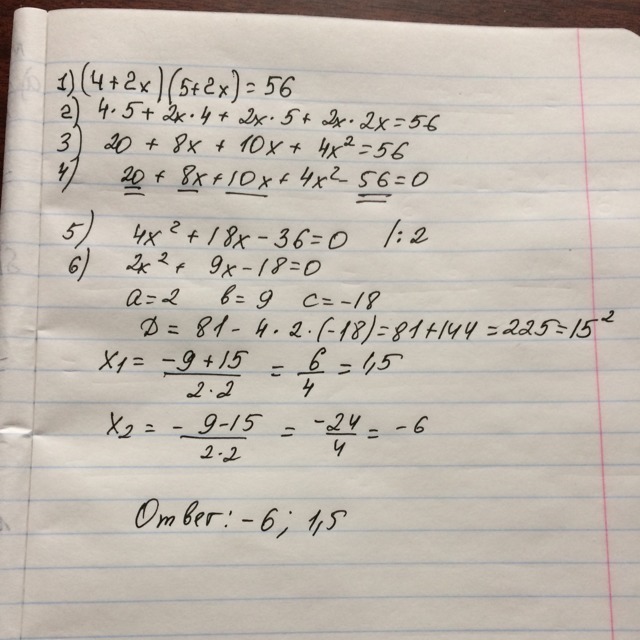 1) (4+2x)(5+2x)=56
2) 4·5+2x·4+2x·5+2x·2x=56
3) 20 + 8x + 10x + 4x²=56
4) 20 + 8x+10x+4x²-56=0
5) 4x²+18x-36=0 /:2
6) 2x²+ 9x-18=0
a=2 b=9 c=-18
D = 81 - 4·2·(-18)=81+144=225=15²
x1 = (-9+15)/(2·2) = 6/4 = 1,5
x2 = (-9-15)/(2·2) = -24/4 = -6
Ответ: -6; 1,5